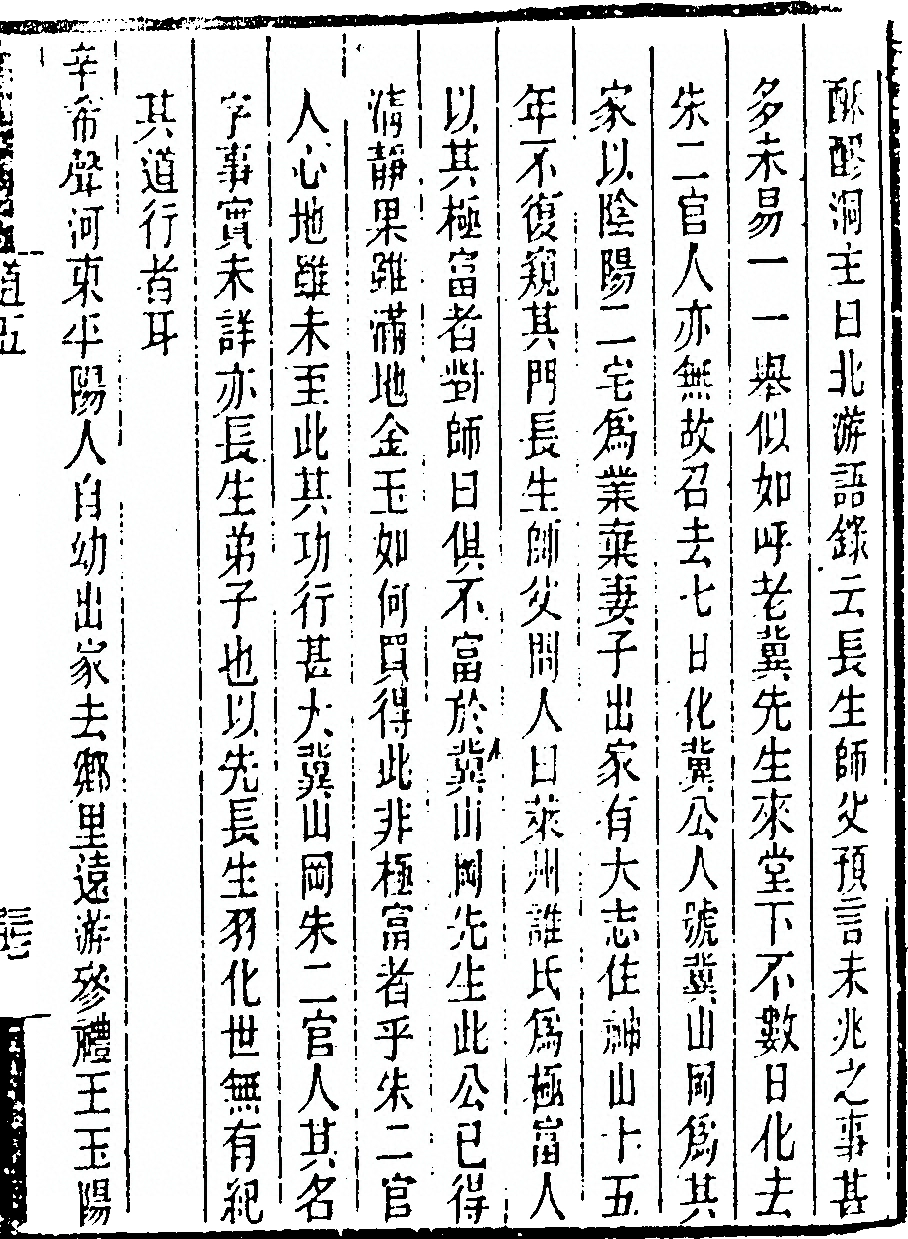 酥醪洞主曰北游語錄云長生師父預言未兆之事甚
多未易一一舉似如呼老冀先生來堂下不數日化去
朱二官人亦無故召去七日化冀公人號冀山岡爲其
家以陰陽二宅爲業棄妻子出家有大志住神山十五
年不復窺其門長生師父問人曰萊州誰氏爲極富人
以其極富者對師曰俱不富於冀山岡先生此公已得
清靜果雖滿地金玉如何買得此非極富者乎朱二官
人心地雖未至此其功行甚大冀山岡朱二官人其名
字事實未詳亦長生弟子也以先長生羽化世無有紀
其道行者耳
辛希聲河東平陽人自幼出家去鄉里遠游參禮王玉陽
道五